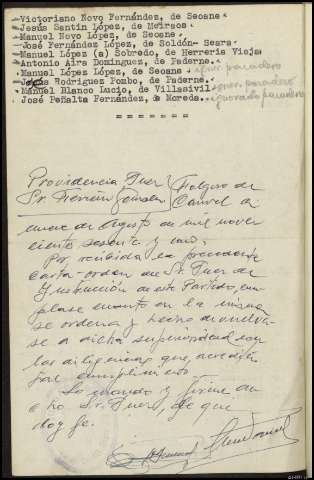 -Victoriano Novo Fernández, de Seoane
-Jesús Santin López, de Meiraos
-Manuel Novo López, de Seoane
-José Fernández López, de Soldón- Seara
-Manuel López (a) Sobredo, de Herreria Vieja
-Antonio Aira Dominguez, de Paderne.
-Manuel López López, de Seoane ignor. paradero
-Jesús Rodriguez Pombo, de Paderne.
-Manuel Blanco Lucio, de Villasivil ignor. paradero
José Peñalta Fernández, de Moreda. ignorado paradero
= = = = = = =
Providencia Juez Folgoso de
Sr. Caurel a
nueve de Agosto de mil nove-
cientos sesenta y uno.
Por recibida la precedente
carta-orden del Sr. Juez de
Instrucción de este Partido, cum-
plase cuanto en la misma
se ordena y hecho devuelva-
se a dicha superioridad con
las diligencias que acredi-
ten cumplimiento
Lo mando y firma
dho Sr. Juez, de que
doy fe.